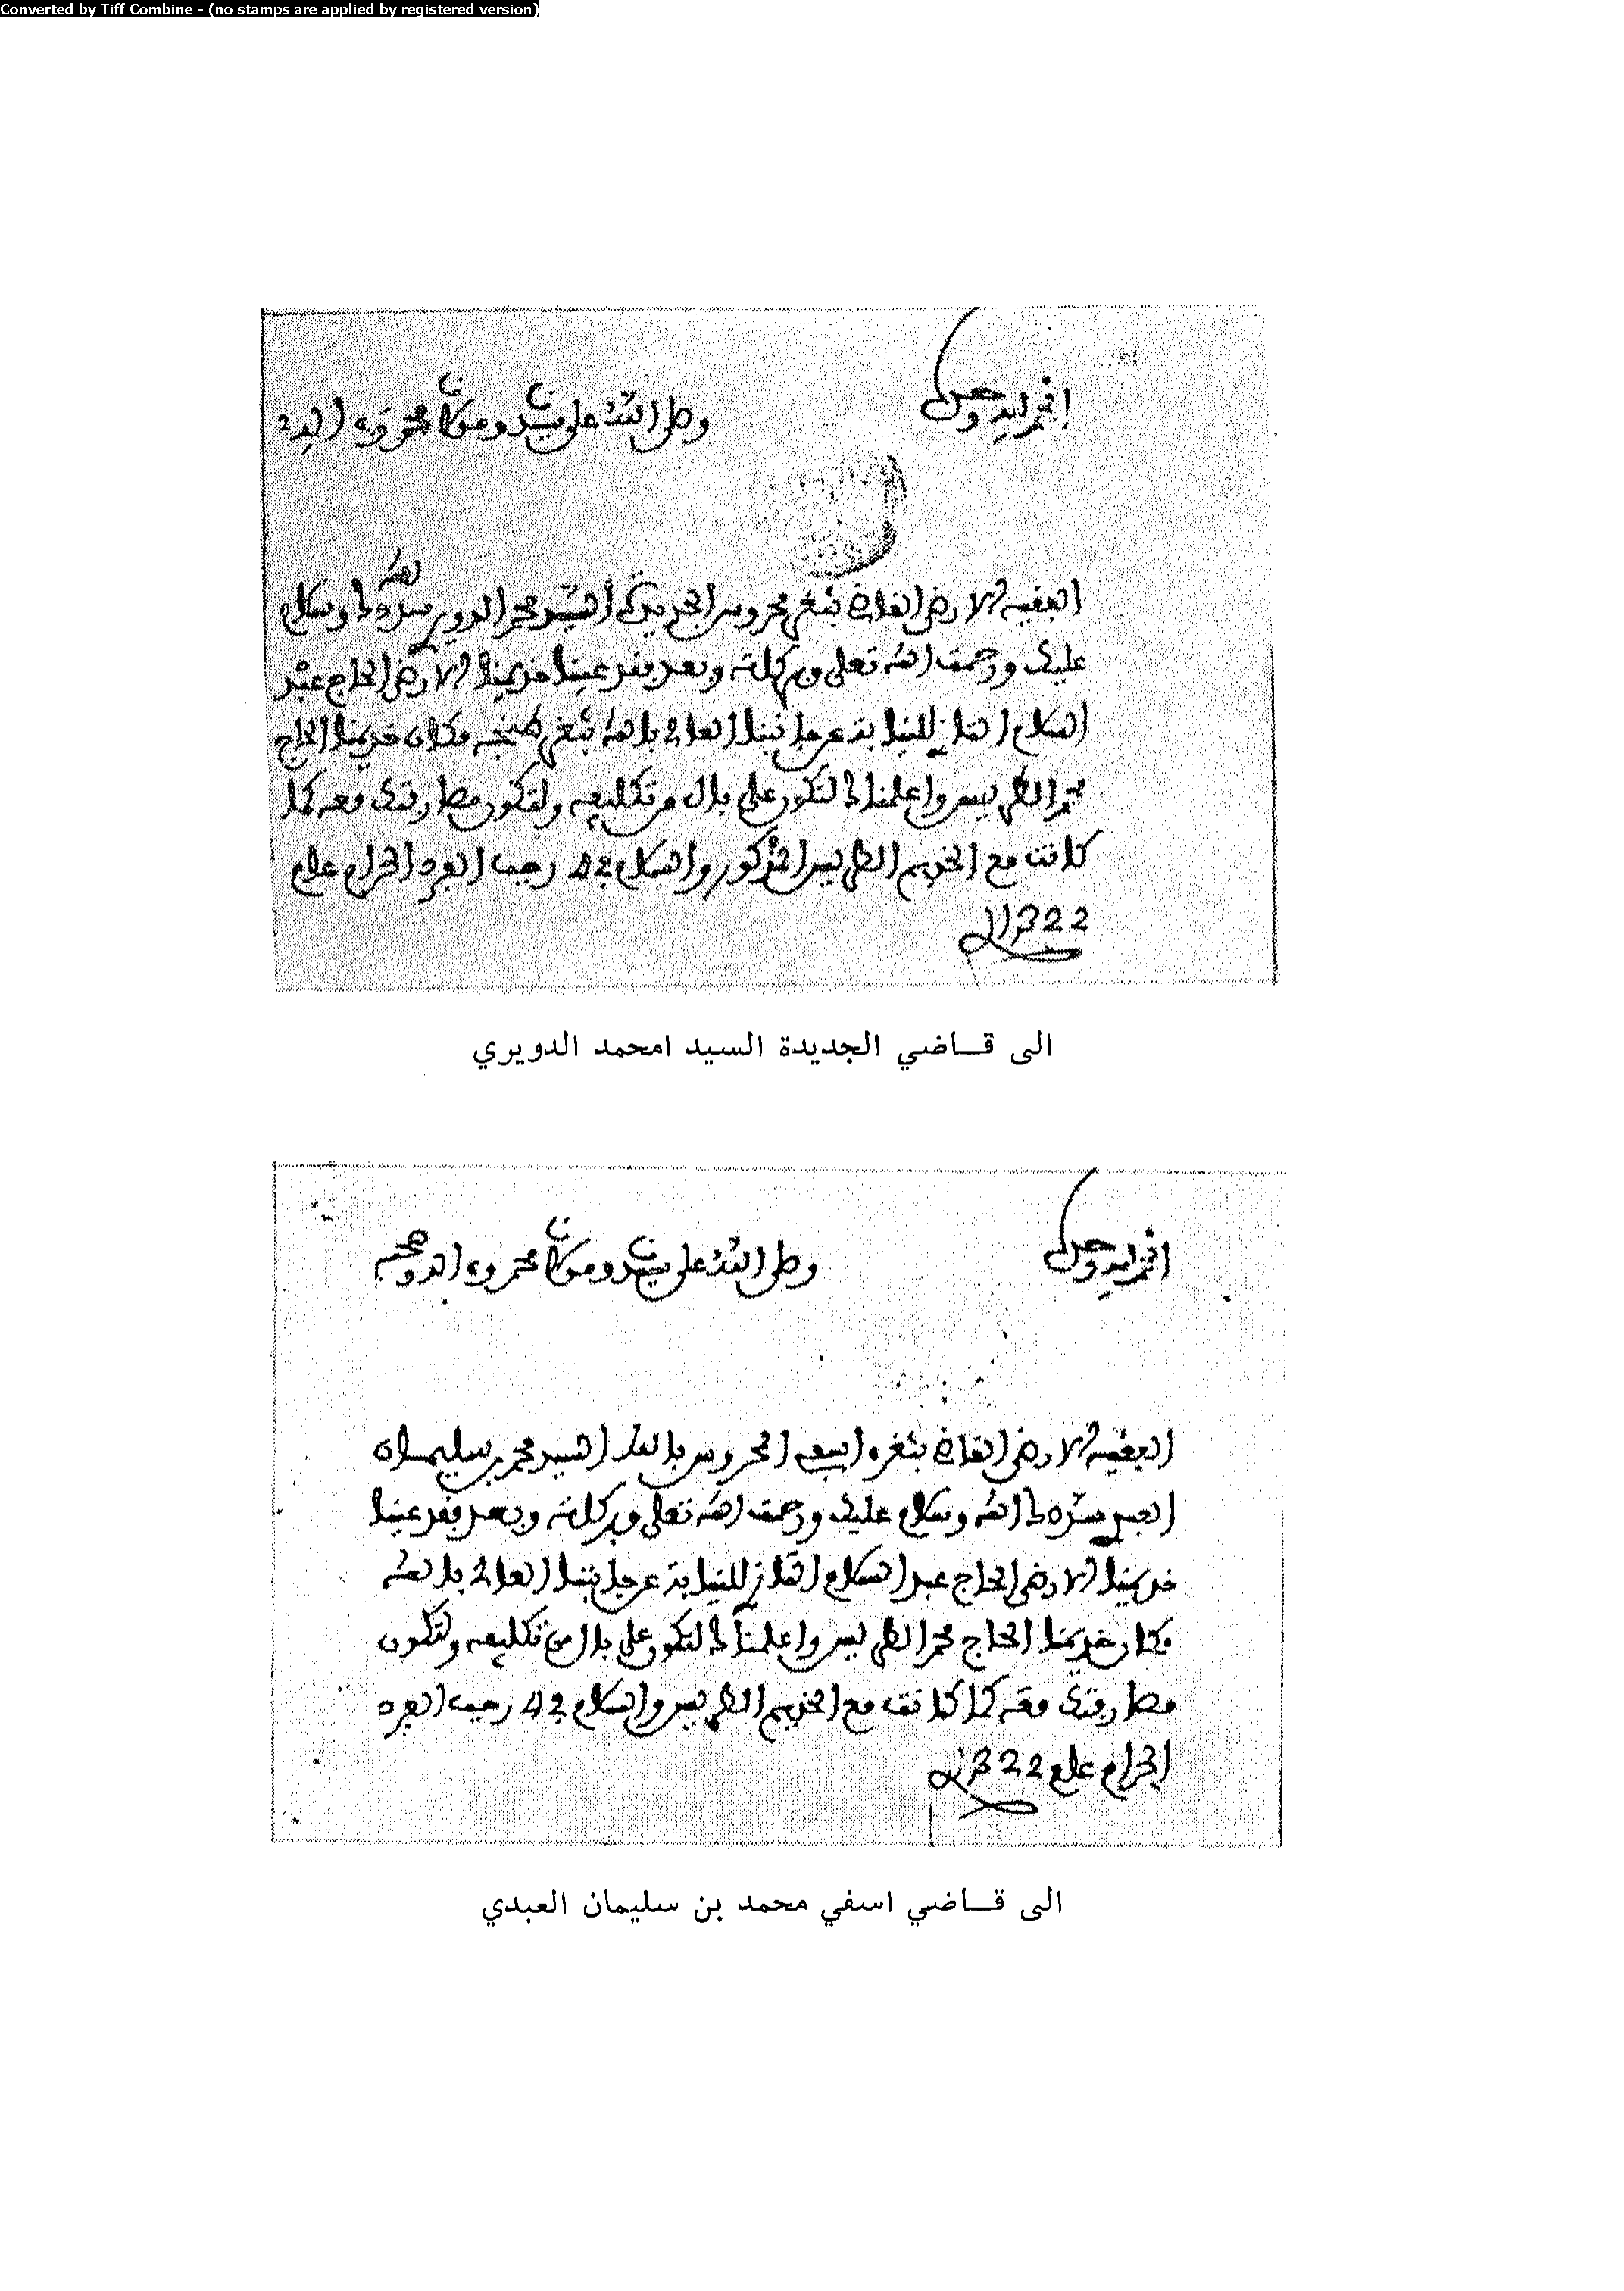 Converted by Tiff Combine - (no stamps are applied by registered version)
الحمد لله وحده
وصلى الله على سيدنا ومولانا محمد وءاله
الفقيه الارضى القاضي بثغر محروس الجديدة السيد محمد الدويري سددك الله وسلام
عليك ورحمت الله تعلى وبركاته وبعد فقد عينا خديمنا الارضى الحاج عبد
السلام التازي للنيابة عن جانبنا العالي بالله بثغر طنجه مكان خديمنا الحاج
محمد الطريس واعلمناك لتكون على بال من تكليفه ولتكون مطارقتك معه كما
كانت مع الخديم الطريس المذكور والسلام في رجب الفرد الحرام عام
1322
الى قاضي الجديدة السيد امحمد الدويري
الحمد لله وحده
وصلى الله على سيدنا ومولانا محمد وءاله وصحبه
الفقيه الارضى القاضي بثغر اسفي المحروس بالله السيد محمد بن سليمان
العبدي سددك الله وسلام عليك ورحمت الله تعلى وبركاته وبعد فقد عينا
خديمنا الارضى الحاج عبد السلام التازي للنيابة عن جانبنا العالي بالله
مكان خديمنا الحاج محمد الطريس واعلمناك لتكون على بال من تكليفه ولتكون
مطارقتك معه كما كانت مع الخديم الطريس والسلام في رجب الفرد
الحرام عام 1322
الى قاضي اسفي محمد بن سليمان العبدي